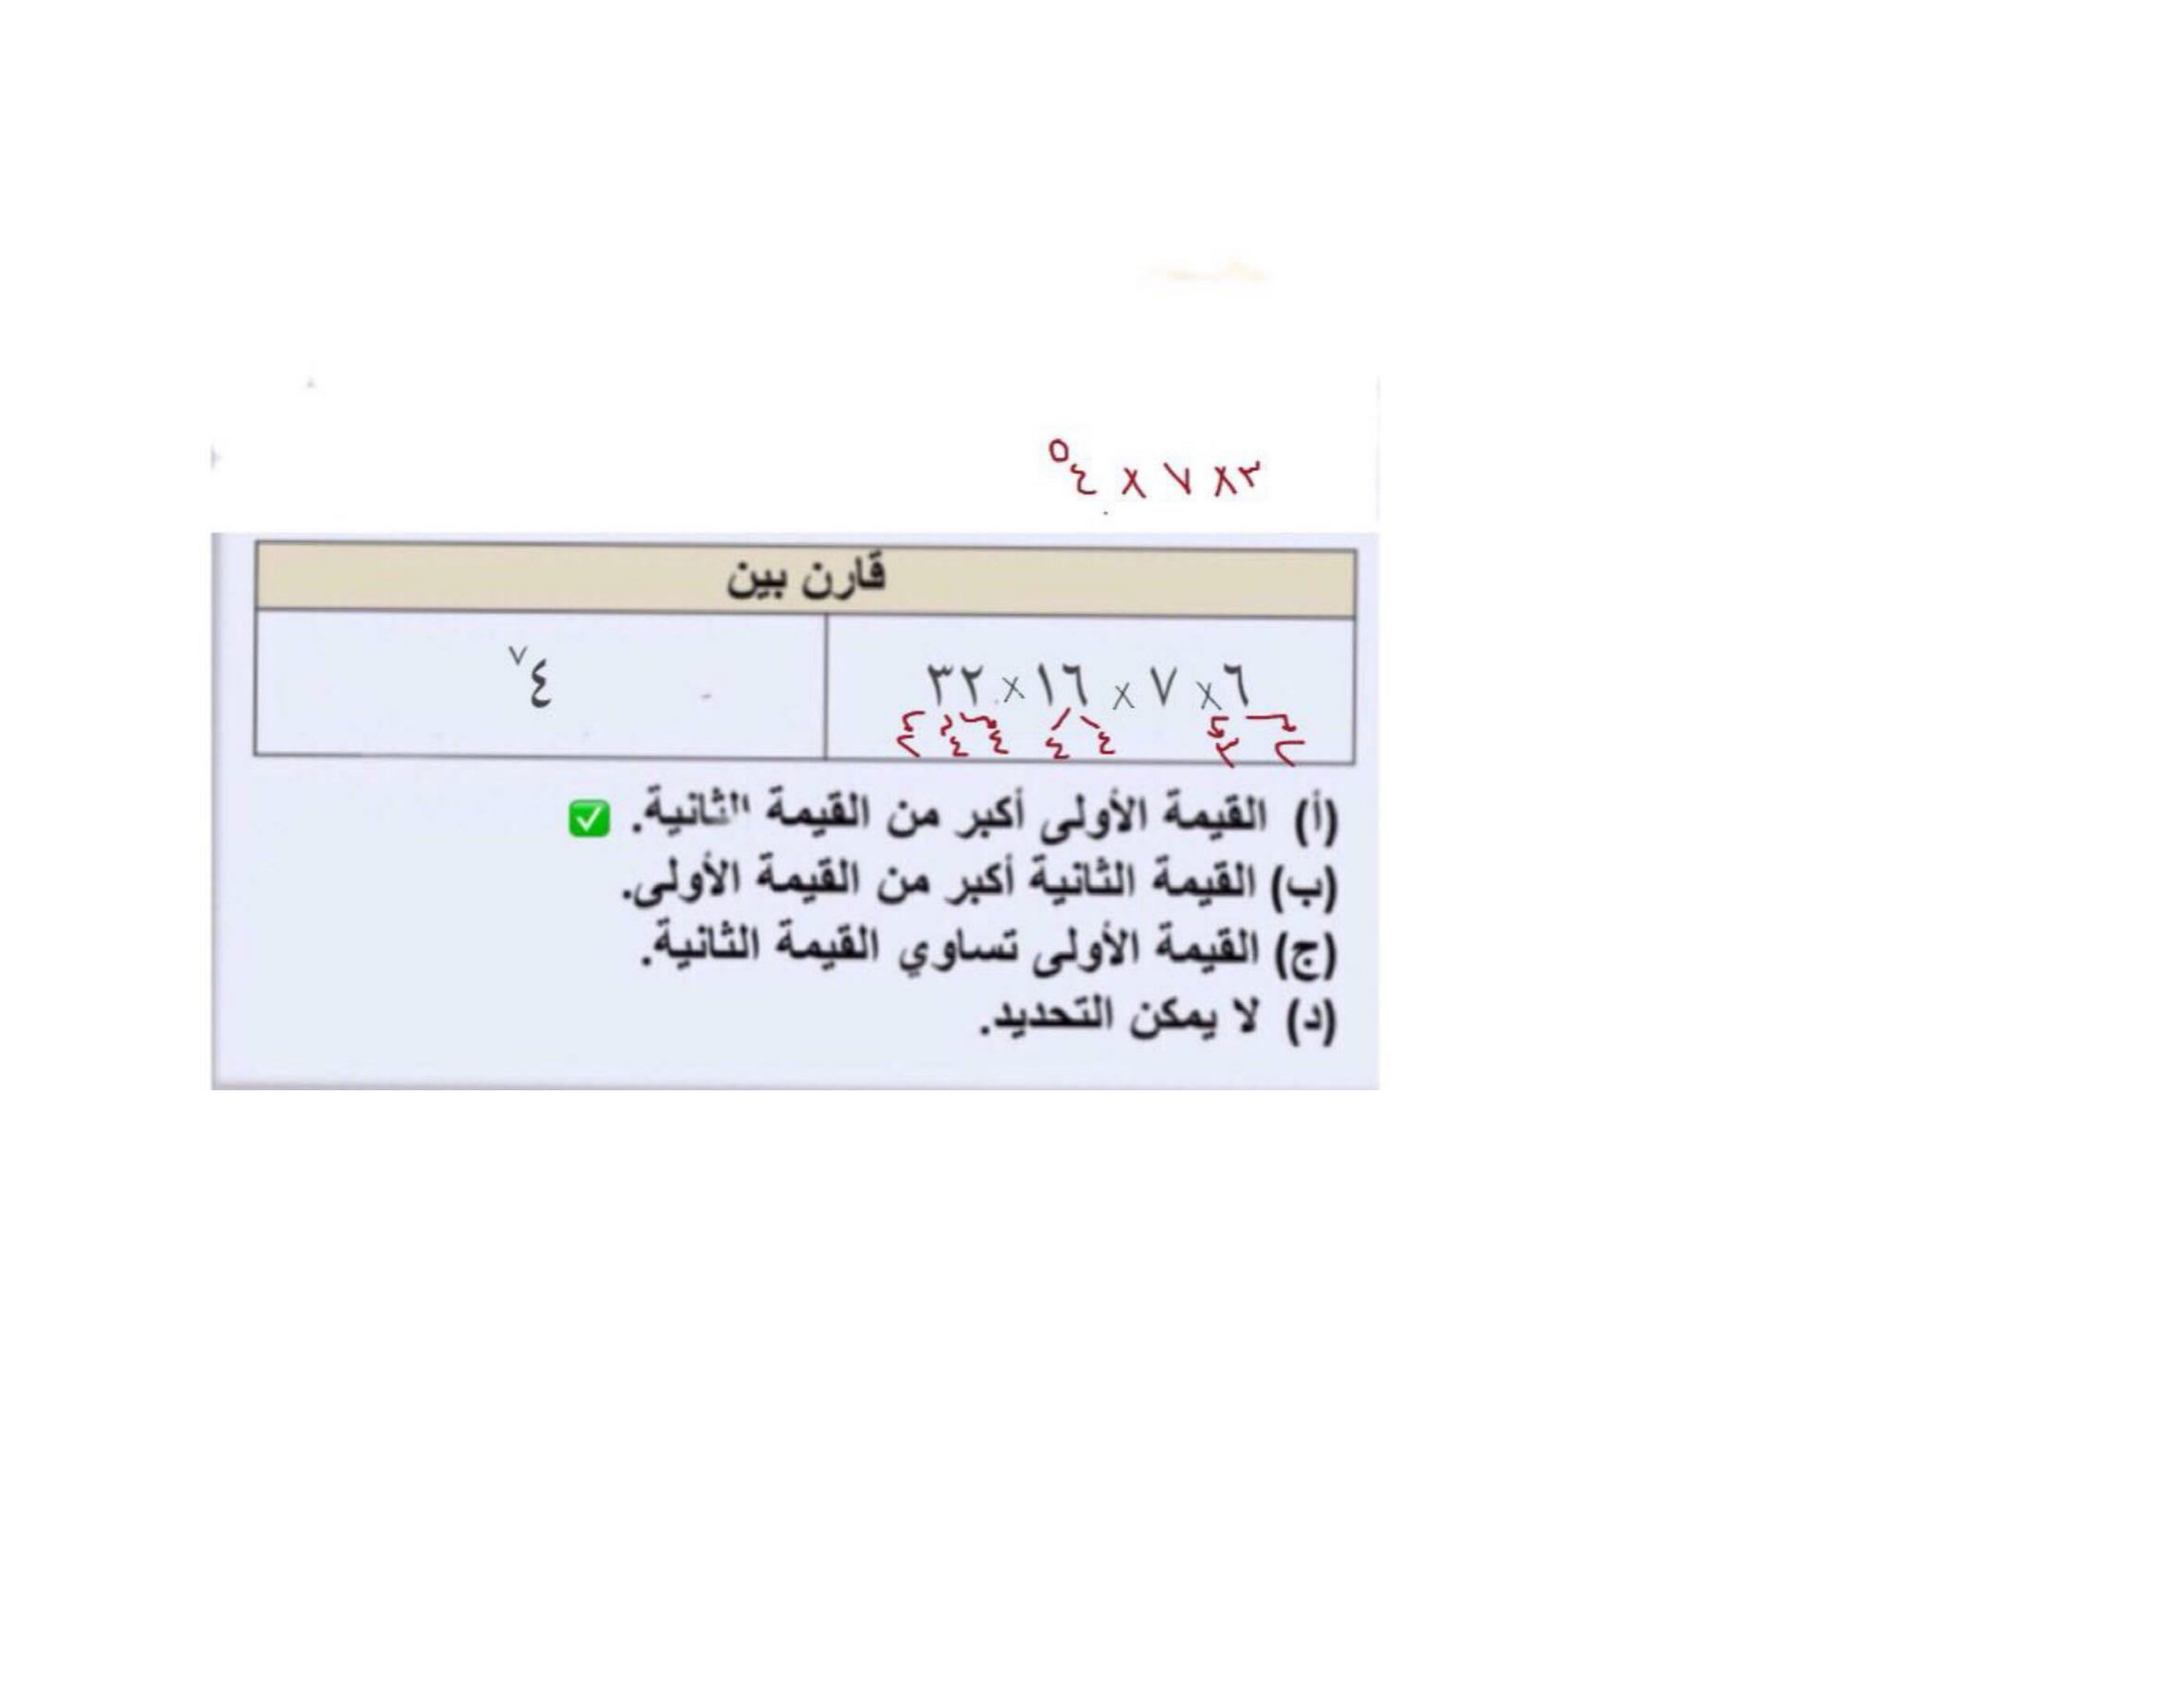 ٣×٧×٤^٥
قارن بين
٦×٧×١٦×٣٢
٤^٧
٢ ٣ ٤ ٤ ٤ ٤ ٢
(أ) القيمة الأولى أكبر من القيمة الثانية. ✅
(ب) القيمة الثانية أكبر من القيمة الأولى.
(ج) القيمة الأولى تساوي القيمة الثانية.
(د) لا يمكن التحديد.